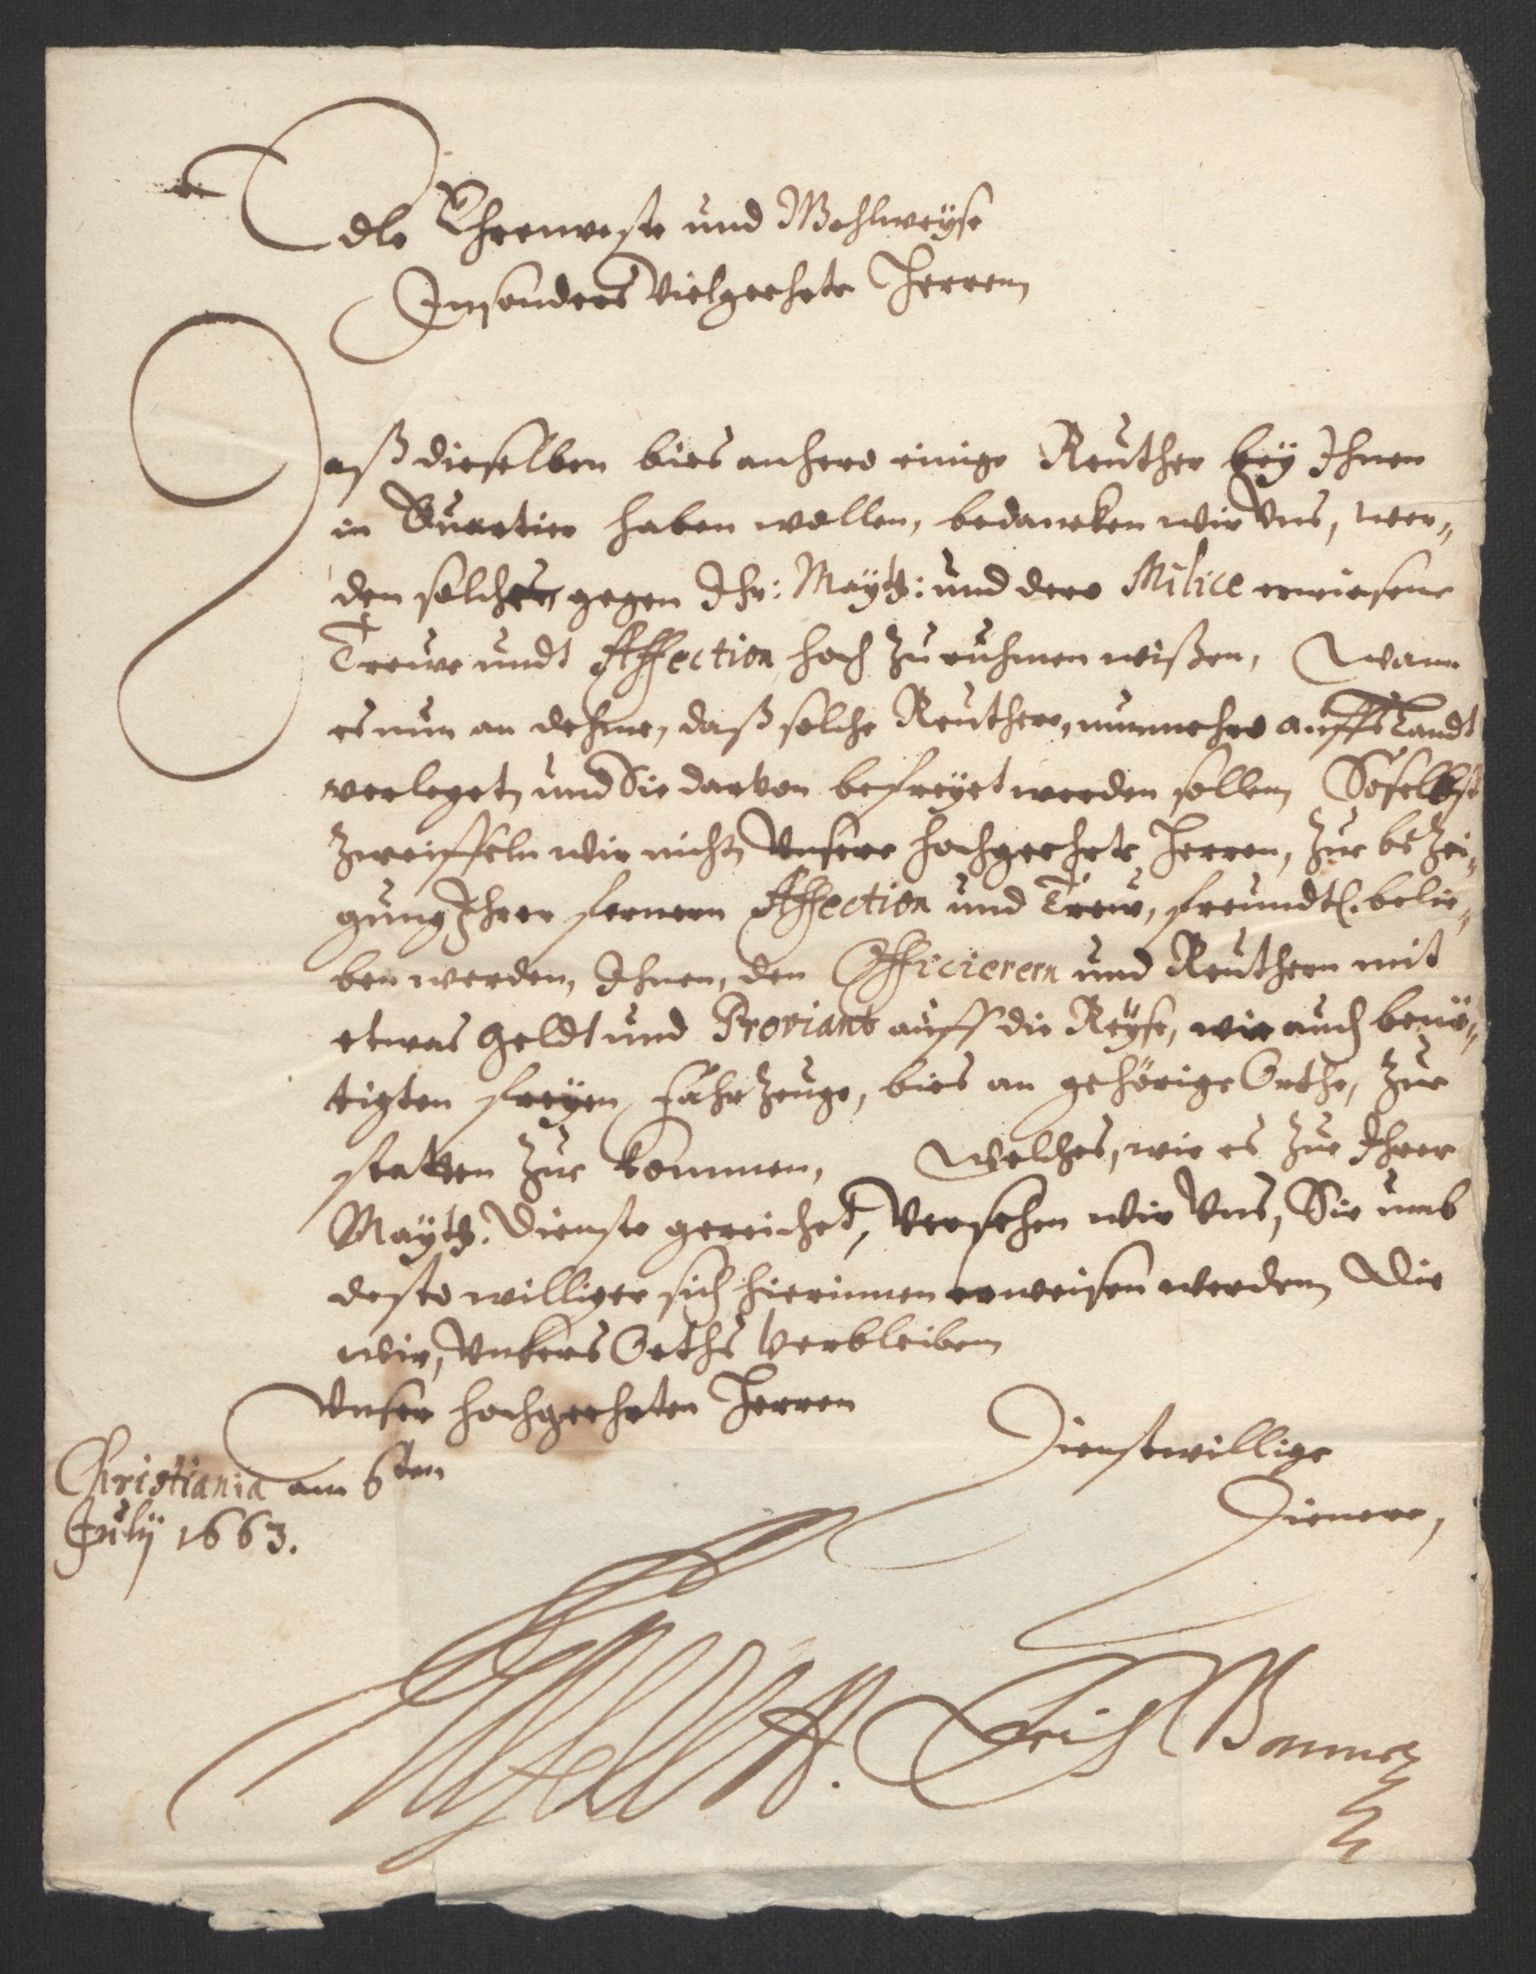 Edle Ehrenveste und Wohlweÿse
Insonders Vielgeehrte Herren
Daß dieselben bies anhero einige Reuther beÿ Ihnen
in Quartier haben wollen, bedancken wir Vns, wer-
den solches, gegen Ihr: Maÿtt: und dero Milice erwiesene
Treuwe undt Affection hoch zu ruhmen wißen, Wann
es nun an dehme, daß solche Reuther, nunmehro auffs Landt
verleget, und Sie darvon befreÿet werden sollen,
Zweiffeln wir nicht, Vnsere hochgeehrte Herren, zur bezei-
gung Ihrer fernern Affection und Treuw, freundtl. belie-
ben werden, Ihnen, den Officierern und Reuthern mit
etwas Geldt und Proviant auff die Reÿse, wie auch benö-
tigten freÿen fuhrzeuge, bies an gehörige Orthe, zur
statten zur kommen, Welches, wie es zur Ihrer
Maÿtt. Dienste gereichet, Versehen wir Vns, Sie umb
desto williger sich hierinnen erweisen werden, Die
wir, Vnsers Orths Verbleiben
Vnser hochgeehrten Herren
Dienstwillige
Dienere,
Christiania am 6ten
Julÿ 1663.
Erich Banner